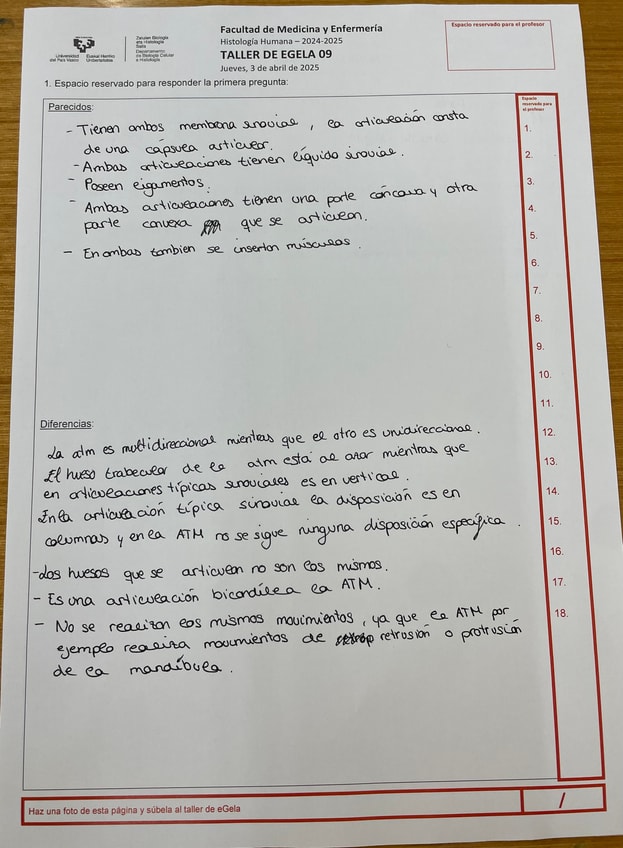 Facultad de Medicina y Enfermería
Histología Humana – 2024-2025
TALLER DE EGELA 09
Jueves, 3 de abril de 2025
Espacio reservado para el profesor
Universidad del País Vasco
Euskal Herriko Unibertsitatea
Zelulen Biologia eta Histologia Saila
Departamento de Biología Celular e Histología
1. Espacio reservado para responder la primera pregunta:
Parecidos:
- Tienen ambos membrana sinovial, la articulación consta
de una cápsula articular.
- Ambas articulaciones tienen líquido sinovial.
- Poseen ligamentos.
- Ambas articulaciones tienen una parte cóncava y otra
parte convexa que se articulan.
- En ambas tambien se insertan músculos.
Diferencias:
La atm es multidireccional mientras que el otro es unidireccional.
El hueso trabecular de la atm está al azar mientras que
en articulaciones típicas sinoviales es en vertical.
En la articulación típica sinovial la disposición es en
columnas y en la ATM no se sigue ninguna disposición específica.
- Los huesos que se articulan no son los mismos.
- Es una articulación bicondílea la ATM.
- No se realizan los mismos movimientos, ya que la ATM por
ejemplo realiza movimientos de retrusión o protrusión
de la mandíbula.
Espacio reservado para el profesor
1.
2.
3.
4.
5.
6.
7.
8.
9.
10.
11.
12.
13.
14.
15.
16.
17.
18.
Haz una foto de esta página y súbela al taller de eGela
/